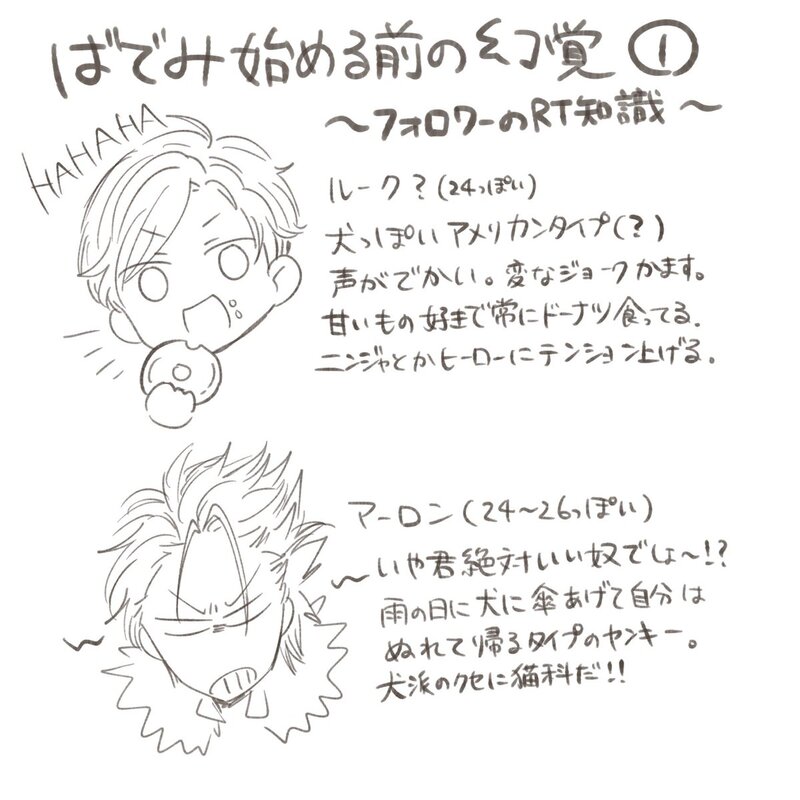 ばでみ始める前の幻覚 ①
～フォロワーのRT知識～
HAHAHA
ルーク？(24っぽい)
犬っぽいアメリカンタイプ(？)
声がでかい。変なジョークかます。
甘いもの好きで常にドーナツ食ってる.
ニンジャとかヒーローにテンション上げる。
アーロン(24～26っぽい)
いや君絶対いい奴でしょ～!?
雨の日に犬に傘あげて自分は
ぬれて帰るタイプのヤンキー。
犬派のクセに猫科だ!!